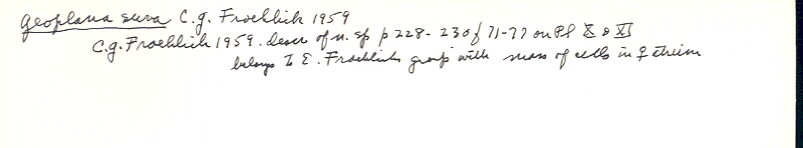 Geoplana suva C.G. Froehlich 1959
C.G. Froehlich 1959. descr of n. sp p 228-230 f 71-77 on Pl X & XI
belongs to E. Froehlichs group with mass of cells in ♀ atrium